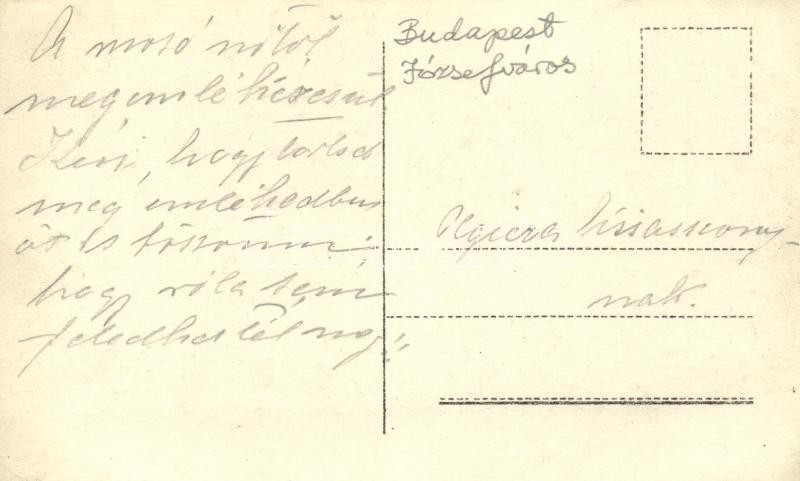 A mosó nőtől
megemlékezésül
Kéri, hogy tartsd
meg emlékedben
őt is köszönni
hogy róla sem
feledkeztél meg!!
Budapest
Józsefváros
kisasszony-
nak.